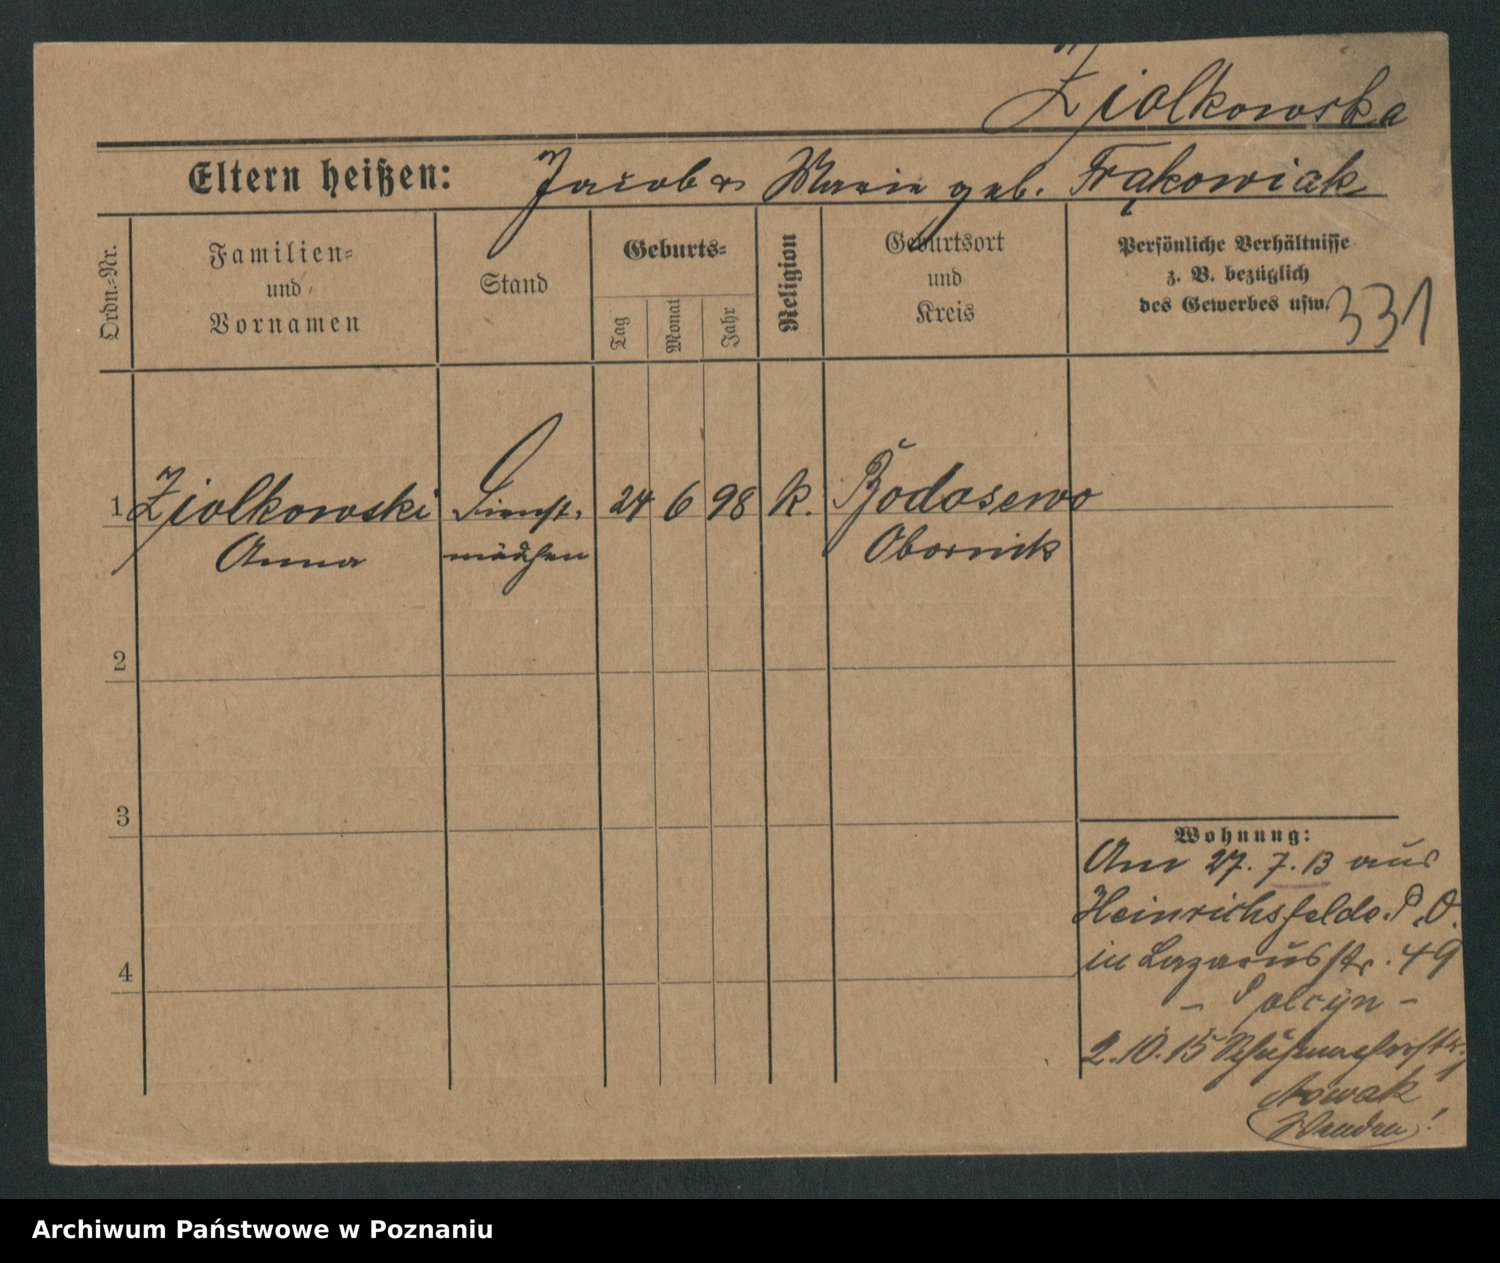 Ziolkowska
Eltern heißen: Jacob & Marie geb. Frąkowiak
Ordn.-Nr.
Familien-
und
Vornamen
Stand
Geburts-
Tag
Monat
Jahr
Religion
Geburtsort
und
Kreis
Persönliche Verhältnisse
z. B. bezüglich
des Gewerbes usw.
331
1 Ziolkowski Dienst- 24 6 98 k. Bodosewo
Anna mädchen Obornik
2
3
4
Wohnung:
Am 27. 7. 13 aus
Heinrichsfelde P. O.
in Lazarusstr. 49
- Polcyn -
2. 10. 15 Schuhmacherstr.
Nowak
Wenden!
Archiwum Państwowe w Poznaniu